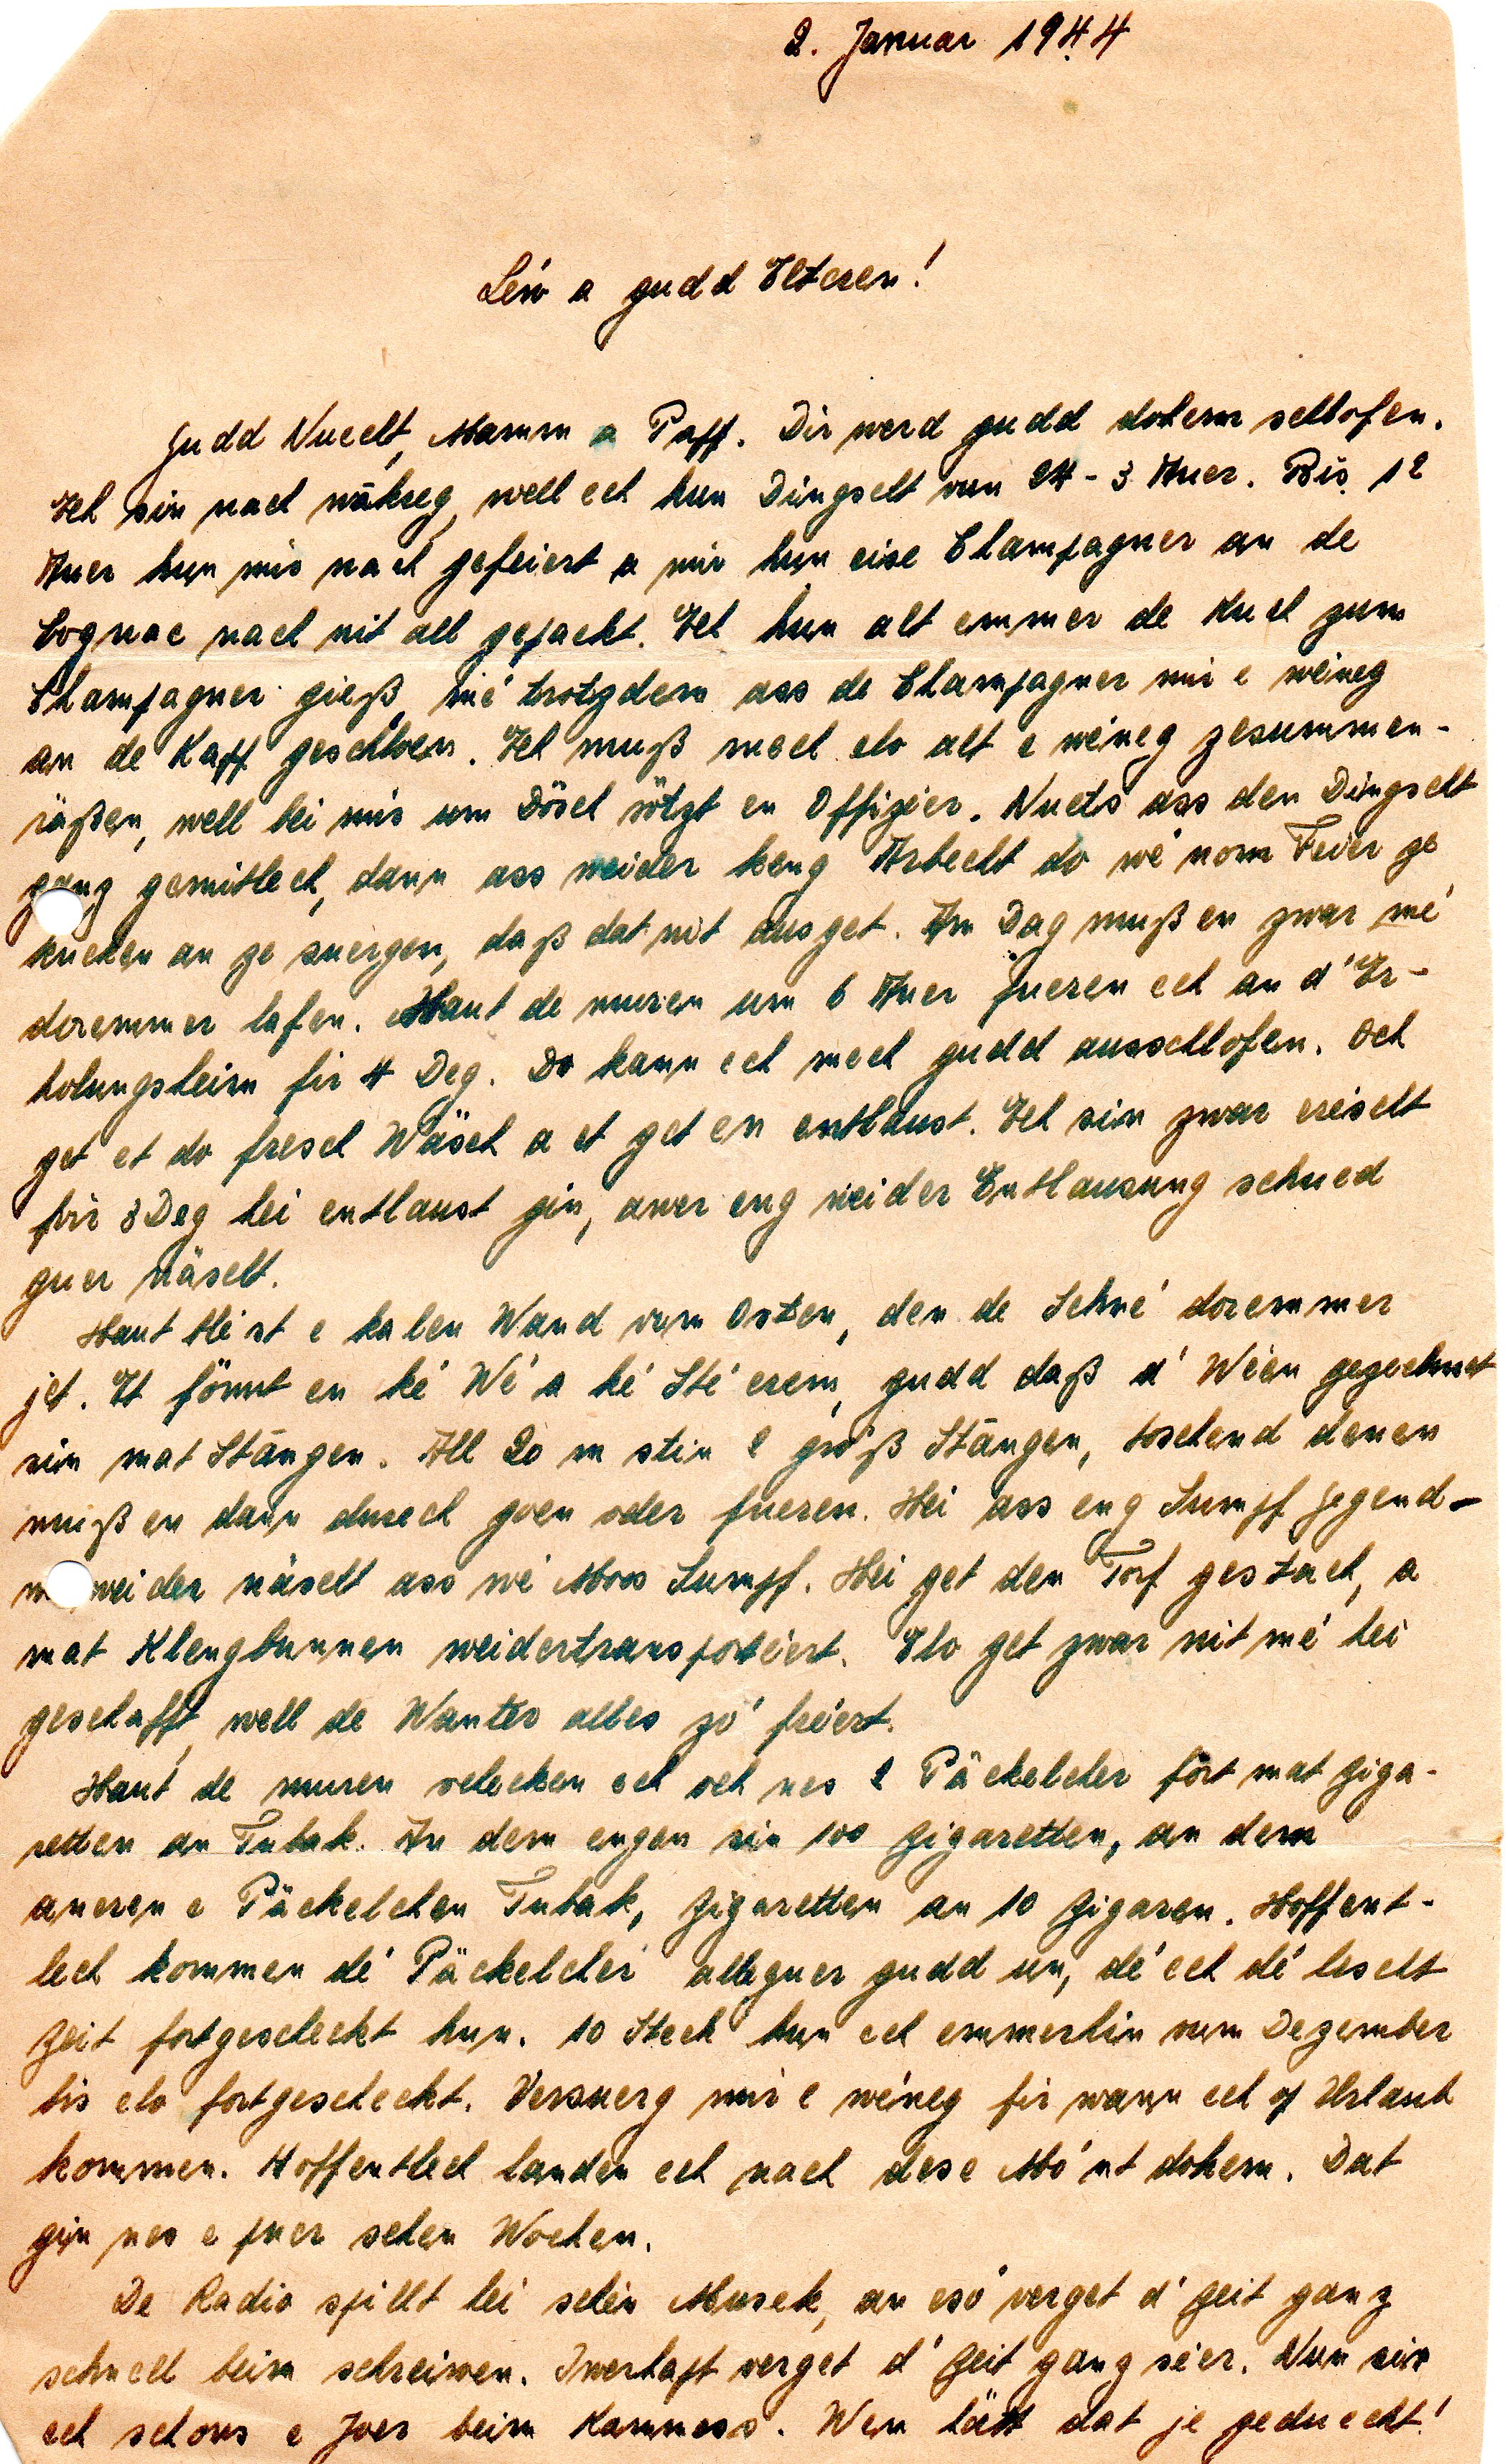 2. Januar 1944
Léiw a gudd Elteren!
Gudd Nuecht, Mamm a Papp. Dir werd gudd dohem schlofen.
Ech sin nach wåkreg, well ech hun Dingscht vun 24 - 3 Auer. Bis 12
Auer hun mir nach gefeiert a mir hun eise Champagner an de
Cognac nach nit all gepackt. Ech hun alt emmer de Kuch zum
Champagner gieß, mé trotzdem ass de Champagner mir e wéineg
an de Kapp geschloen. Ech muß mech elo alt e wéneg zesummen-
räßen, well bei mir um Dösch sötzt en Offizéer. Nuets ass den Dingscht
ganz gemitlech, dann ass weider keng Arbecht do wé nom Feier ze
kucken an ze suergen, daß dat nit ausget. Am Dag muß en zwar mé
deremmer lafen. Haut de muren um 6 Auer fueren ech an d'Er-
holungsheim fir 4 Deg. Do kann ech mech gudd ausschlofen. Och
get et do fresch Wäsch a et get en entlaust. Ech sin zwar eréischt
fir 8 Deg hei entlaust gin, awer eng weider Entlausung schued
guer näscht.
Haut bléist e kalen Wand vum Osten, den de Schné doremmer
jet. Et fönnt en ké Wé a ké Sté erem, gudd daß d' Wéen gezechnet
sin mat Stängen. All 20 m stin 2 gréiß Stängen, töschend denen
muß en dann durech goen oder fueren. Hei ass eng Sumpf Gegend -
weider näscht ass wé Moos Sumpf. Hei get den Torf gestach, a
mat Klengbunnen weidertransportéert. Elo get zwar nit mé hei
geschafft, well de Wanter alles zó fréert.
Haut de muren schecken ech och nes 2 Päckelcher fort mat Ziga-
retten an Tubak. An dem engen sin 100 Zigaretten, an dem
aneren e Päckelchen Tubak, Zigaretten an 10 Zigaren. Hoffent-
lech kommen dé Päckelcher alleguer gudd un, dé ech dé lescht
Zeit fortgescheckt hun. 10 Steck hun ech emmerhin vum Dezember
bis elo fortgescheckt. Versuerg mir e wéneg fir wann ech op Urlaub
kommen. Hoffentlech landen ech nach dese Mó'nt dohem. Dat
gin nes e puer schen Wochen.
De Radio spillt hei schéin Musek, an esó verget d' Zeit ganz
schnell beim schreiwen. Iwerhapt verget d' Zeit ganz séier. Nun sin
ech schons e Joer beim Kommess. Wen hätt dat je geduecht!